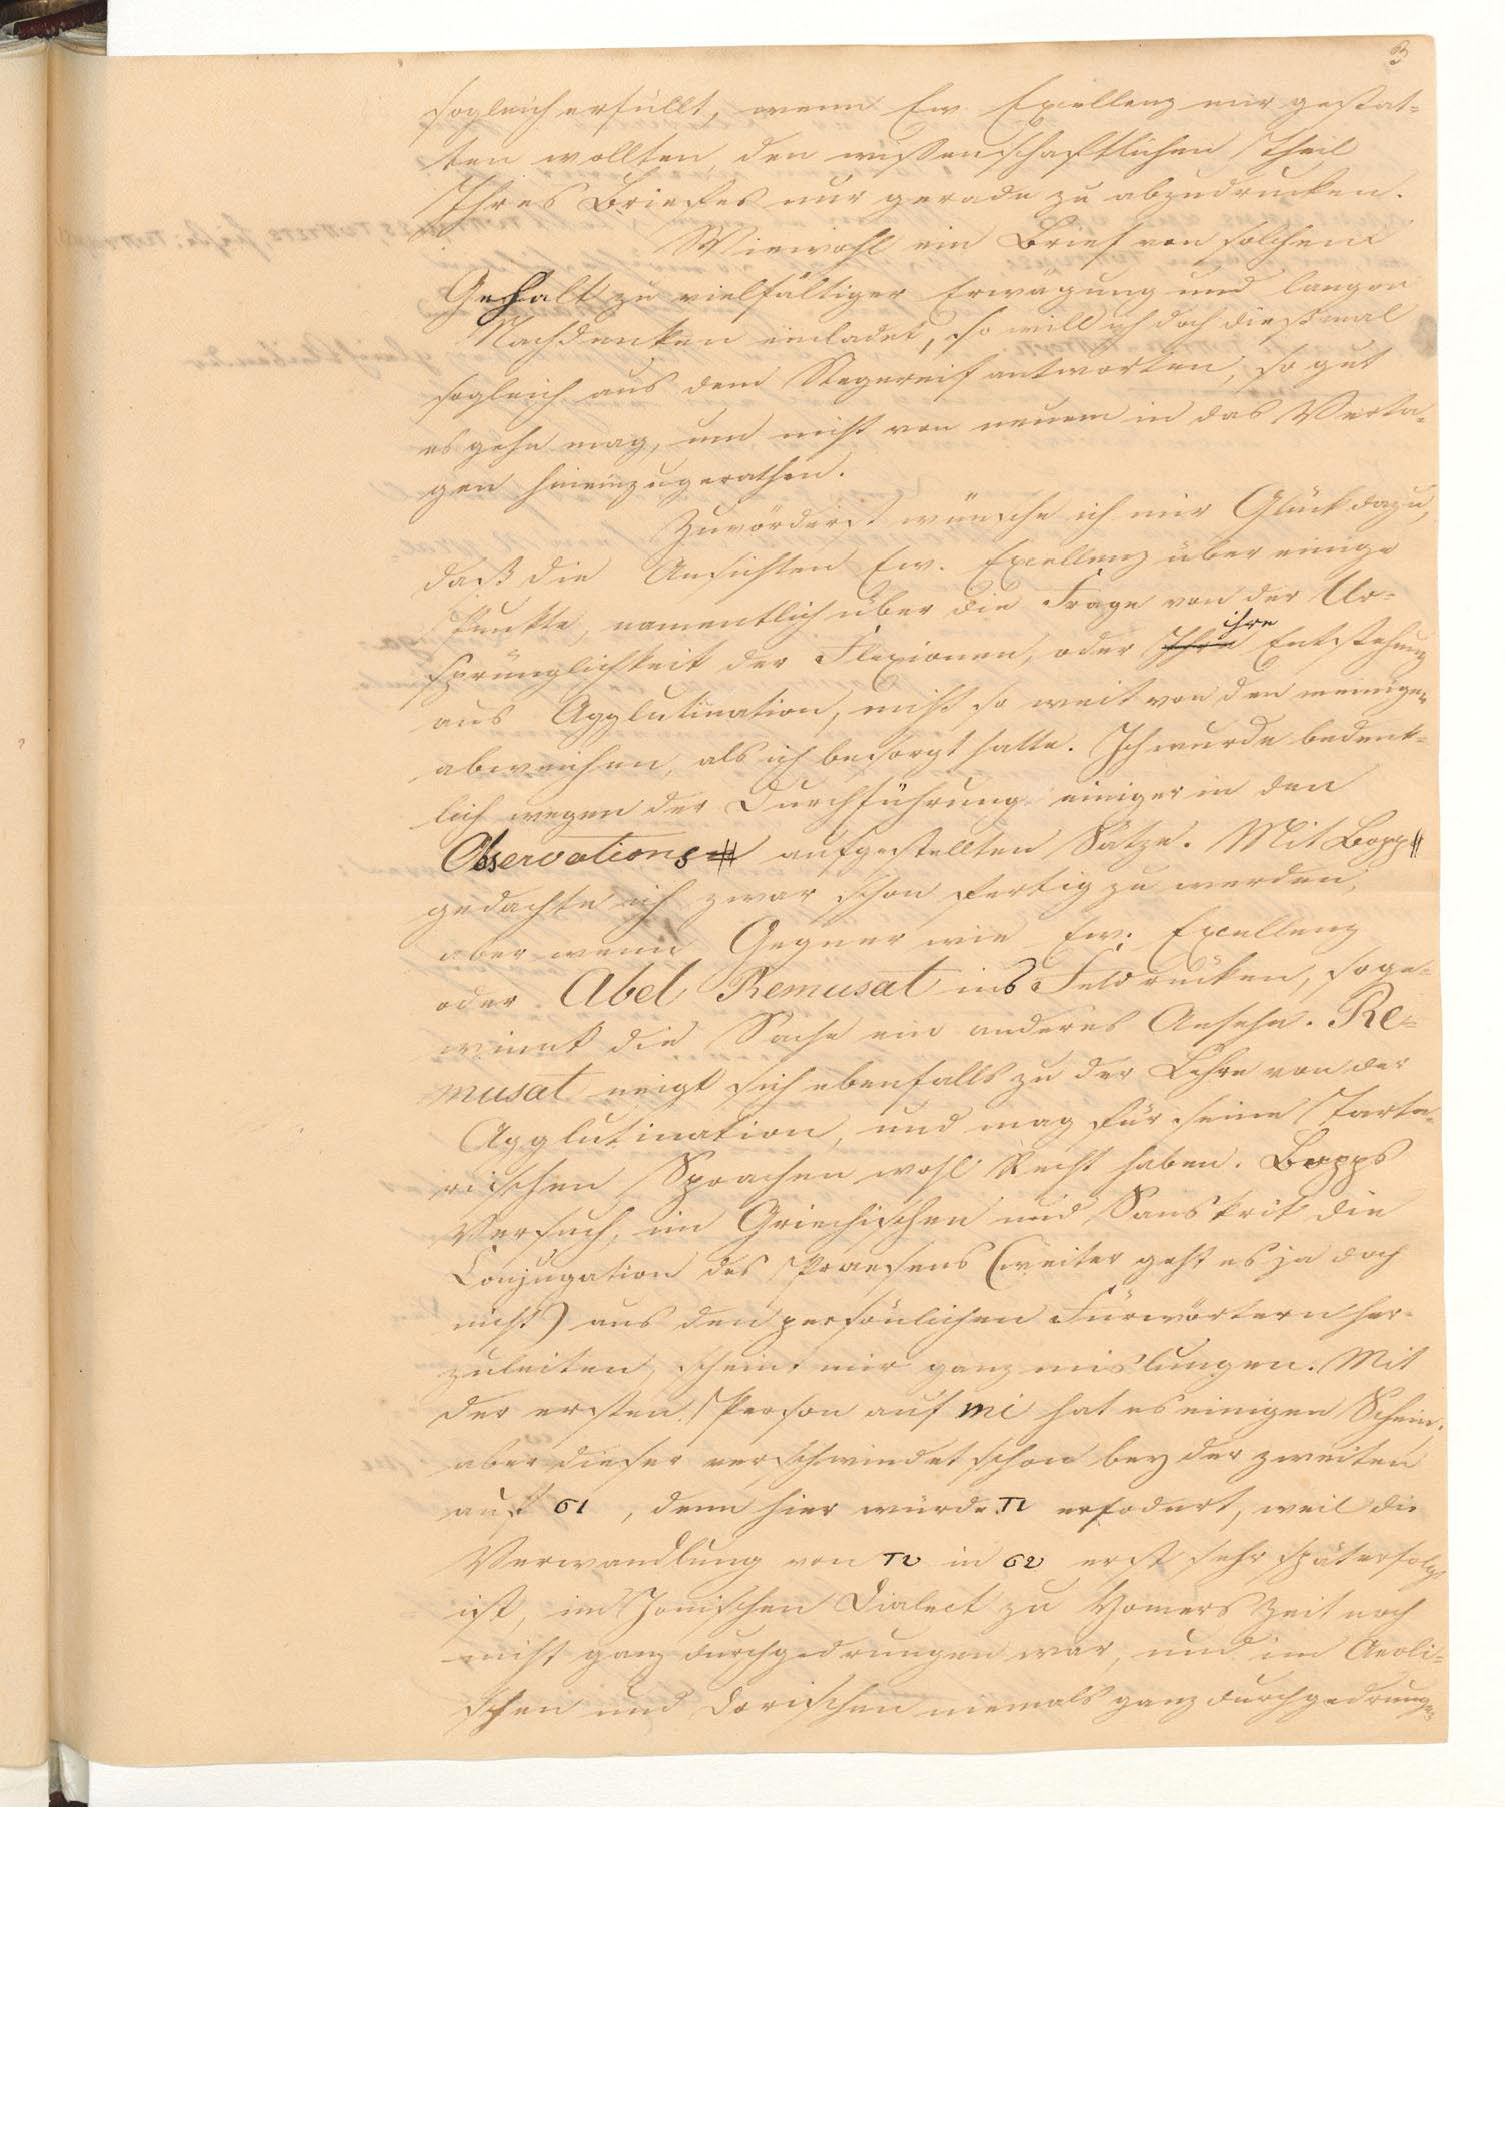 3
sogleich erfüllt, wenn Ew. Excellenz mir gestat-
ten wollten, den wissenschaftlichen Theil
Ihres Briefes nur gerade zu abzudrucken.
Wiewohl ein Brief von solchem
Gehalt zu vielfältiger Erwägung und langen
Nachdenken einladet, so will ich doch dießmal
sogleich aus dem Stegereif antworten, so gut
es gehn mag, um nicht von neuem in das Verta-
gen hineinzugerathen.
Zuvörderst wünsche ich mir Glück dazu,
daß die Ansichten Ew. Excellenz über einige
Punkte, namentlich über die Frage von der Ur-
ihre
sprünglichkeit der Flexionen, oder Ihre Entstehung
aus Agglutination, nicht so weit von den meinigen
abweichen, als ich besorgt hatte. Ich wurde bedenk-
lich wegen der Durchführung einiger in den
Observations aufgestellten Sätze. Mit Bopp
gedachte ich zwar schon fertig zu werden,
aber wenn Gegner wie Ew. Excellenz
oder Abel Remusat ins Feld rücken, so ge-
winnt die Sache ein anderes Ansehn. Re-
musat neigt sich ebenfalls zu der Lehre von der
Agglutination, und mag für seine Tarta-
rischen Sprachen wohl Recht haben. Bopps
Versuch, im Griechischen und Sanskrit die
Conjugation des Praesens (weiter geht es ja doch
nicht) aus den persönlichen Fürwörtern her-
zuleiten, scheint mir ganz mislungen. Mit
der ersten Person auf mi hat es einigen Schein,
aber dieser verschwindet schon bey der zweiten
auf σι, denn hier würde τι erfodert, weil die
Verwandlung von τυ in συ erst sehr spät erfolgt
ist, im Jonischen Dialect zu Homers Zeit noch
nicht ganz durchgedrungen war, und im Aeoli-
schen und Dorischen niemals ganz durchgedrungen